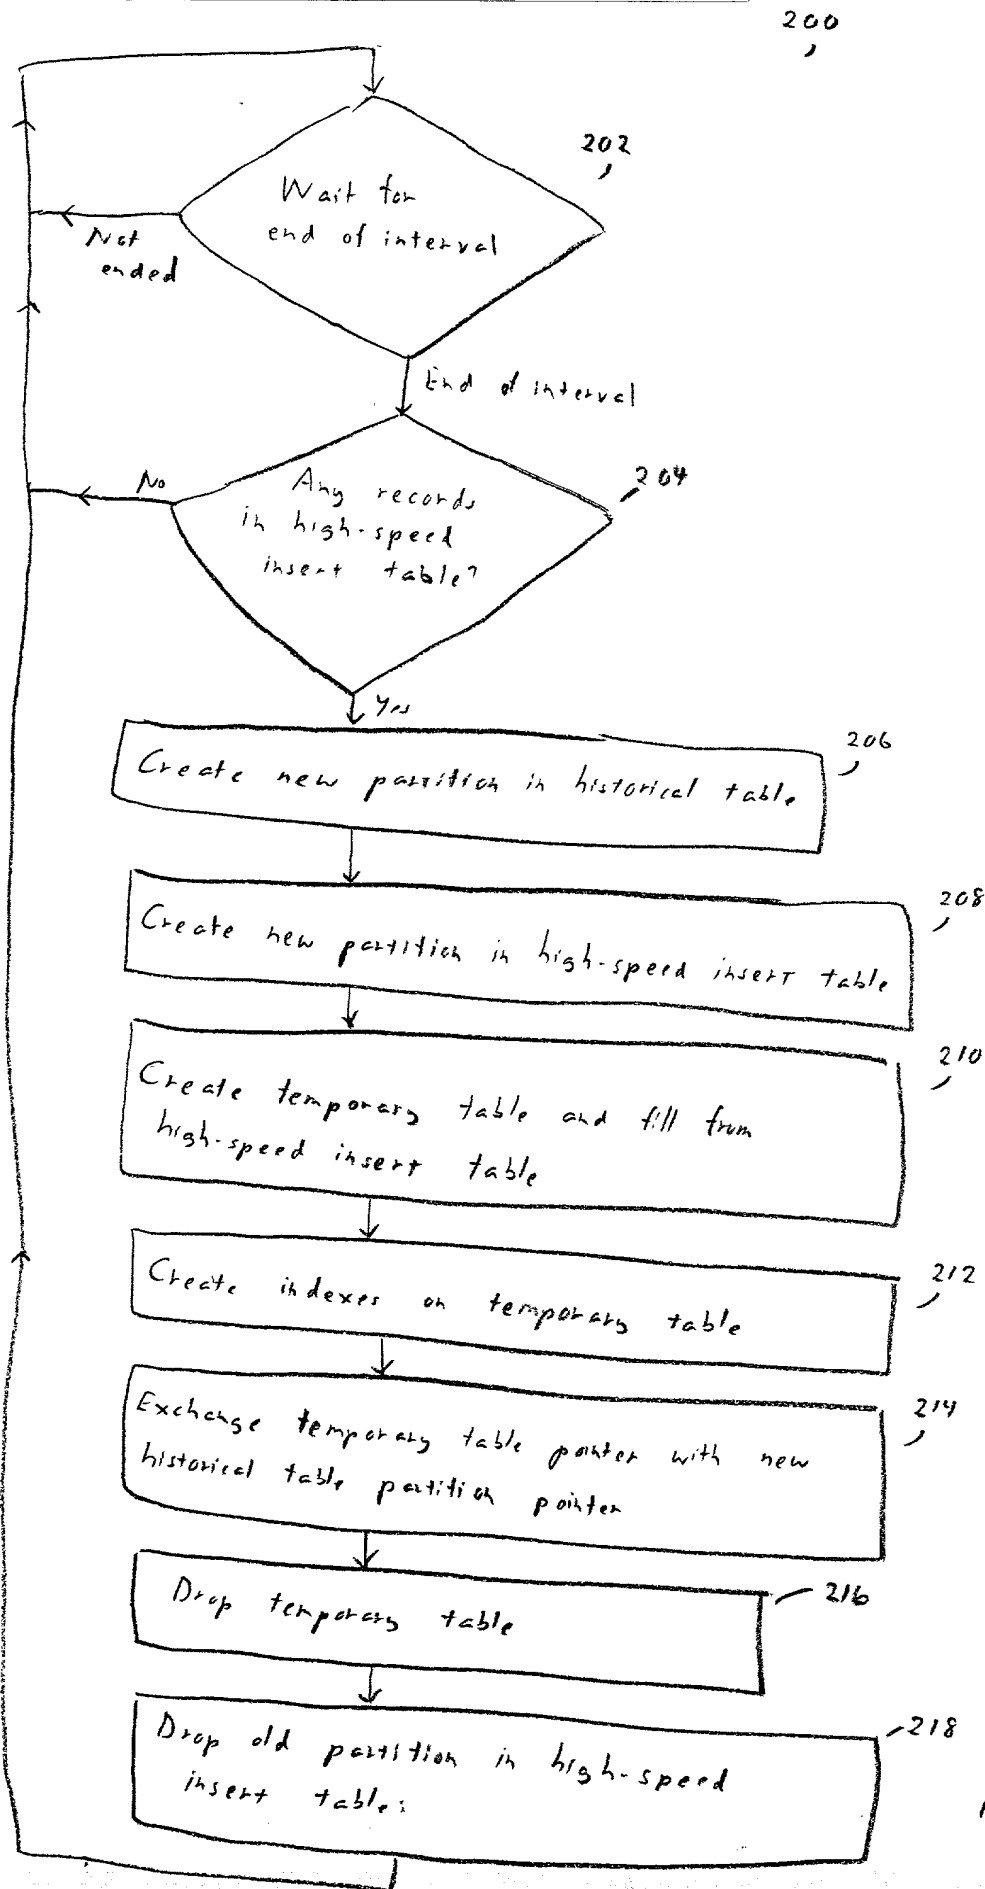 200
202
Wait for
end of interval
Not
ended
End of interval
204
No
Any records
in high-speed
insert table?
Yes
206
Create new partition in historical table
208
Create new partition in high-speed insert table
210
Create temporary table and fill from
high-speed insert table
212
Create indexes on temporary table
214
Exchange temporary table pointer with new
historical table partition pointer
216
Drop temporary table
218
Drop old partition in high-speed
insert table: